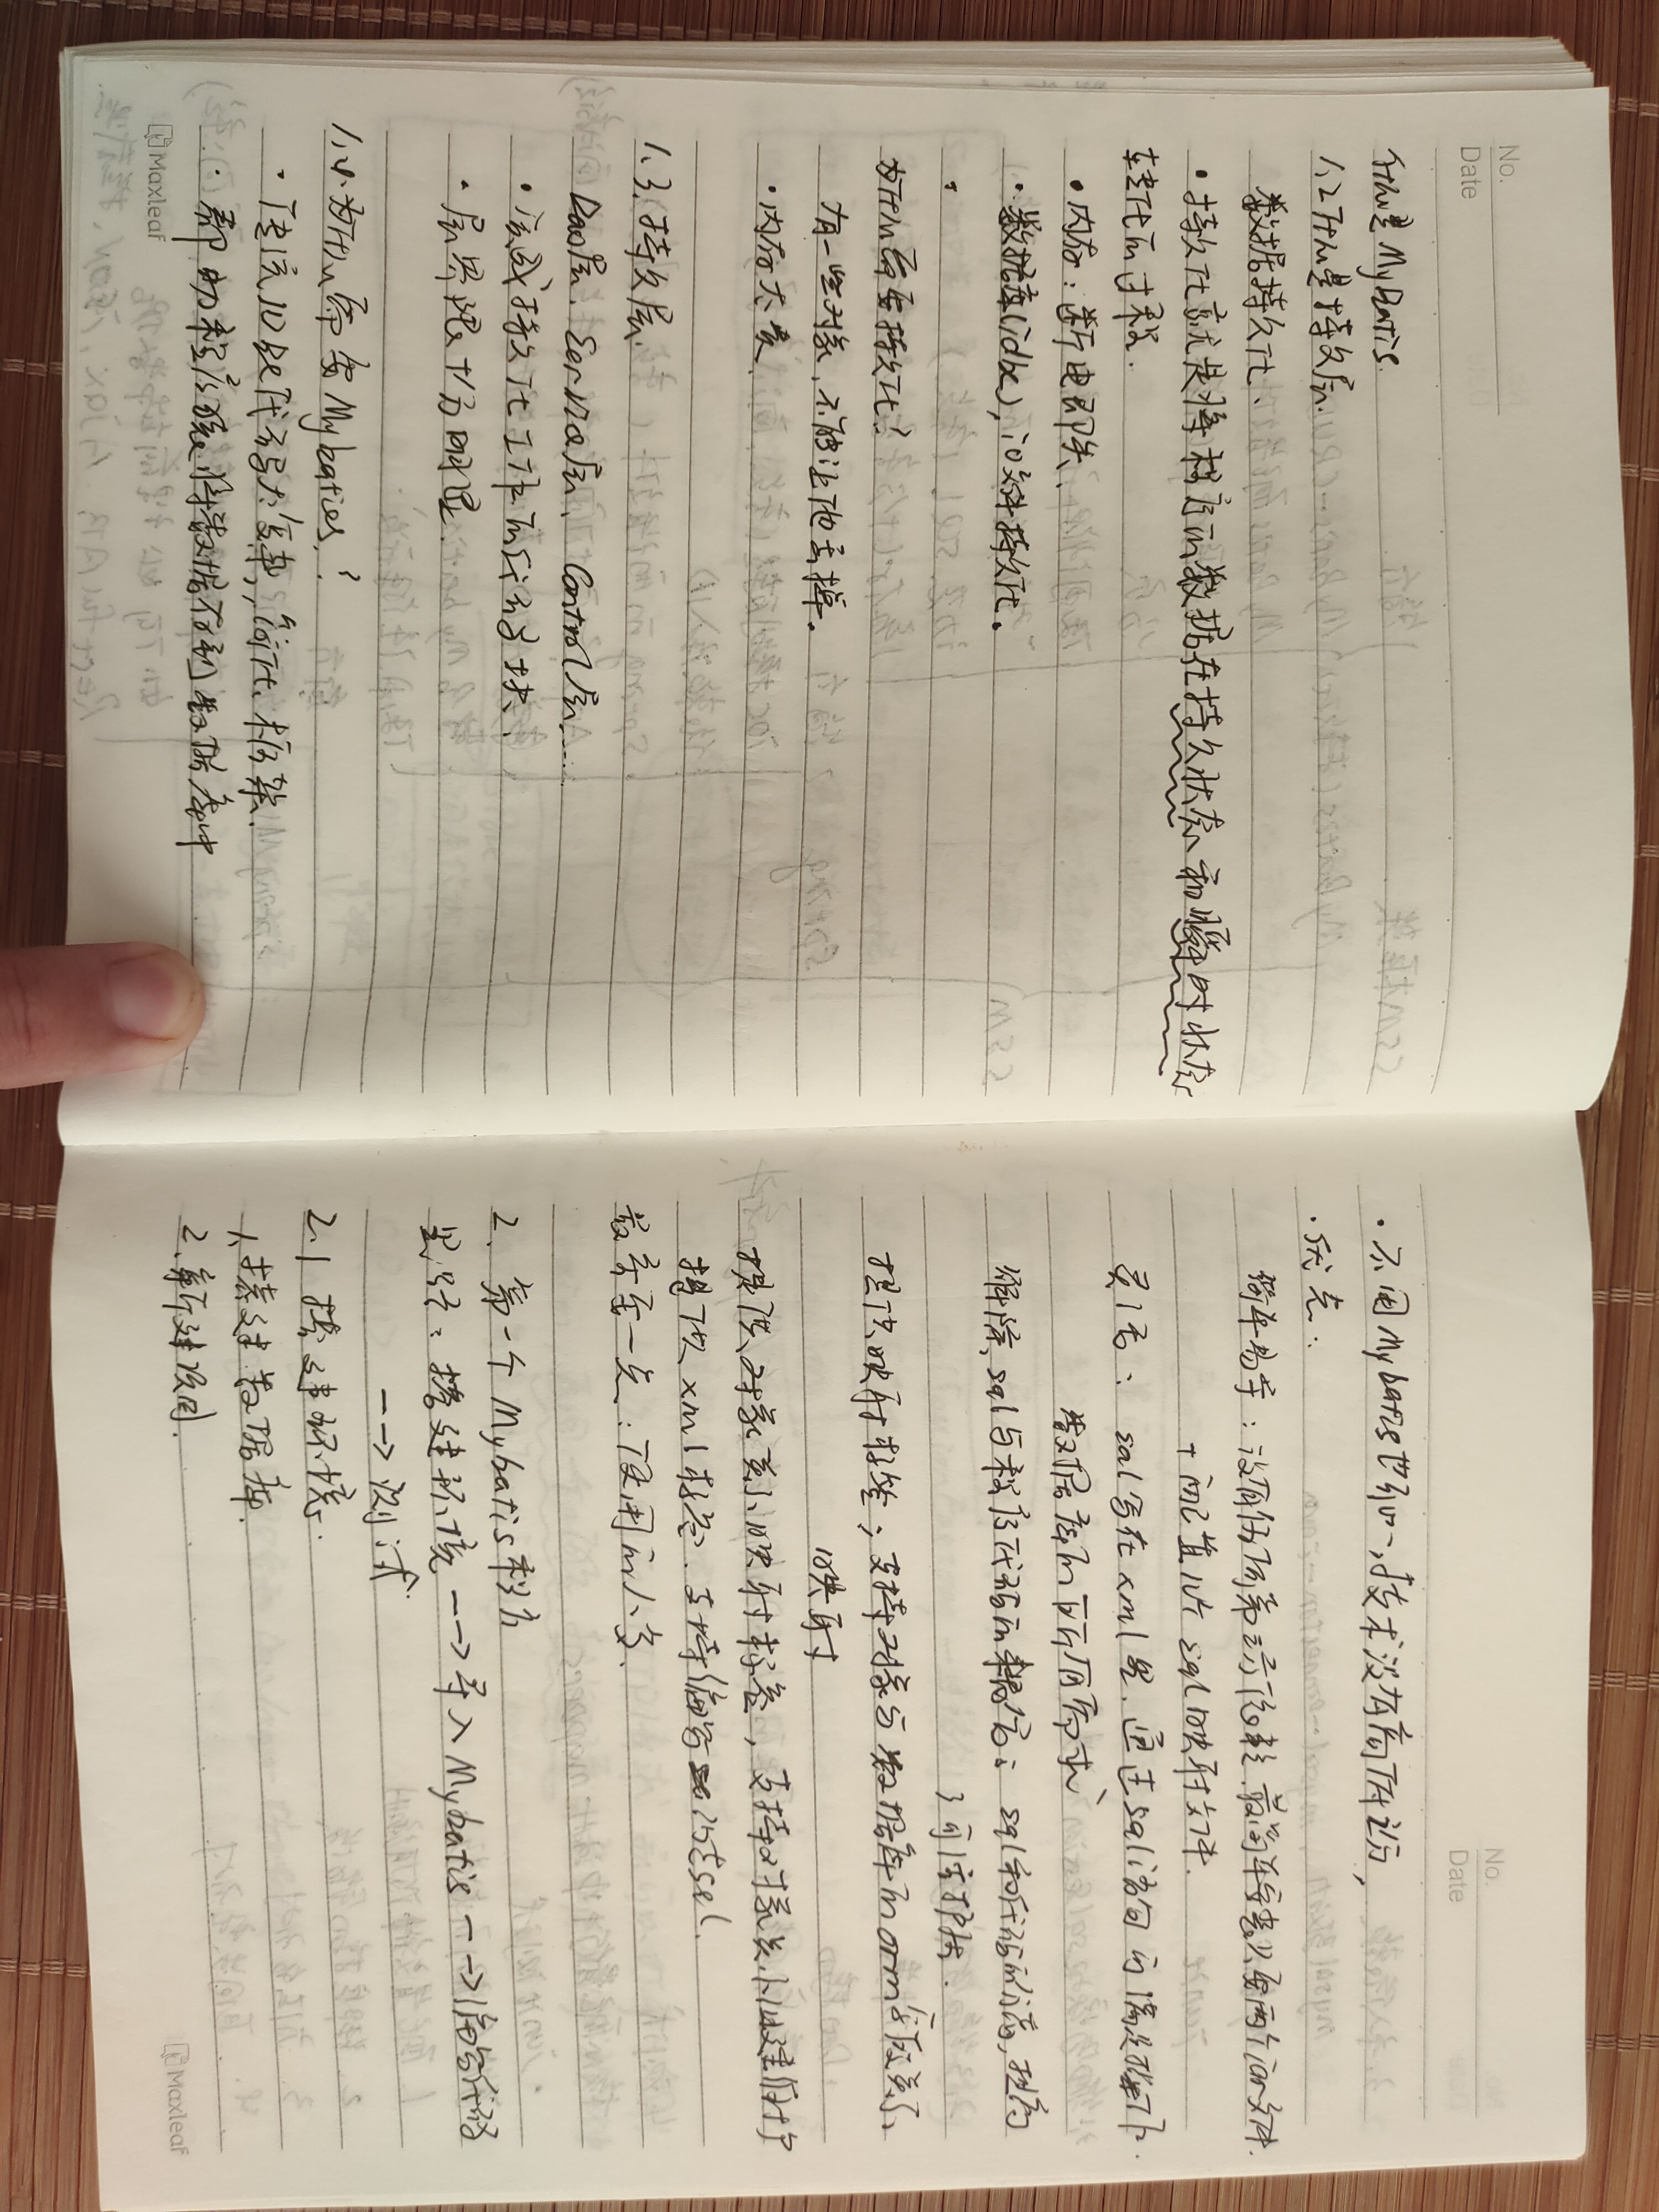 No.
Date
什么是MyBatis.
1.2 什么是持久层.
数据持久化、
· 持久化就是将程序的数据在持久状态和瞬时状态
转化的过程.
· 内存:断电即失、
· 数据库(jdbc), io文件持久化。
·
为什么需要持久化?
有一些对象,不能让他丢掉。
· 内存太贵.
1.3、持久层.
Dao层、Service层、Control层…
· 完成持久化工作的代码块、
· 层界限十分明显.
1.4. 为什么需要Mybaties?
· 传统JDBC代码太复杂,简化、框架、
· 帮助程序猿将数据存到数据库中
Maxleaf
No.
Date
· 不用Mybaties也可以、技术没有高下之分,
· 优点:
简单易学:没有任何第三方依赖、最简单安装只要两个jar文件.
+ 配置几个sql映射文件.
灵活:sql写在xml里、通过sql语句可满足操作
数据库的所有需求、
解除sql与程序代码的耦合:sql和代码的分离,提高
了可维护性.
提供映射标签,支持对象与数据库的orm字段关系
映射
提供对象关系映射标签,支持对象关系组建维护
提供xml标签、支持编写动态sql.
最重要一点:使用的人多.
2、第一个Mybatis程序
思路:搭建环境 --> 导入Mybatis --> 编写代码
--> 测试
2.1 搭建环境.
1、搭建数据库.
2、新建项目.
Maxleaf